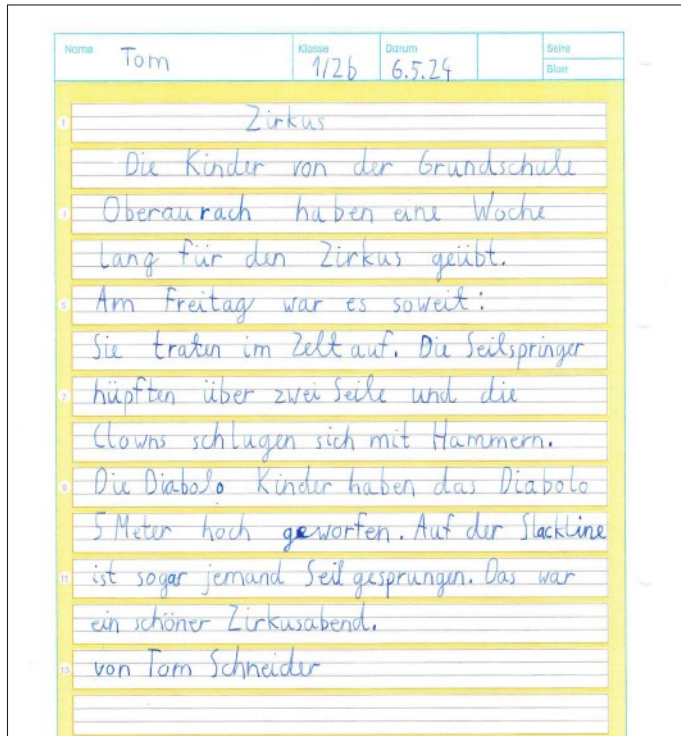 Name Tom Klasse 1/2b Datum 6.5.24 Seite
Blatt
1 Zirkus
Die Kinder von der Grundschule
3 Oberaurach haben eine Woche
lang für den Zirkus geübt.
5 Am Freitag war es soweit:
Sie traten im Zelt auf. Die Seilspringer
7 hüpften über zwei Seile und die
Clowns schlugen sich mit Hammern.
9 Die Diabolo Kinder haben das Diabolo
5 Meter hoch geworfen. Auf der Slackline
11 ist sogar jemand Seil gesprungen. Das war
ein schöner Zirkusabend.
13 von Tom Schneider